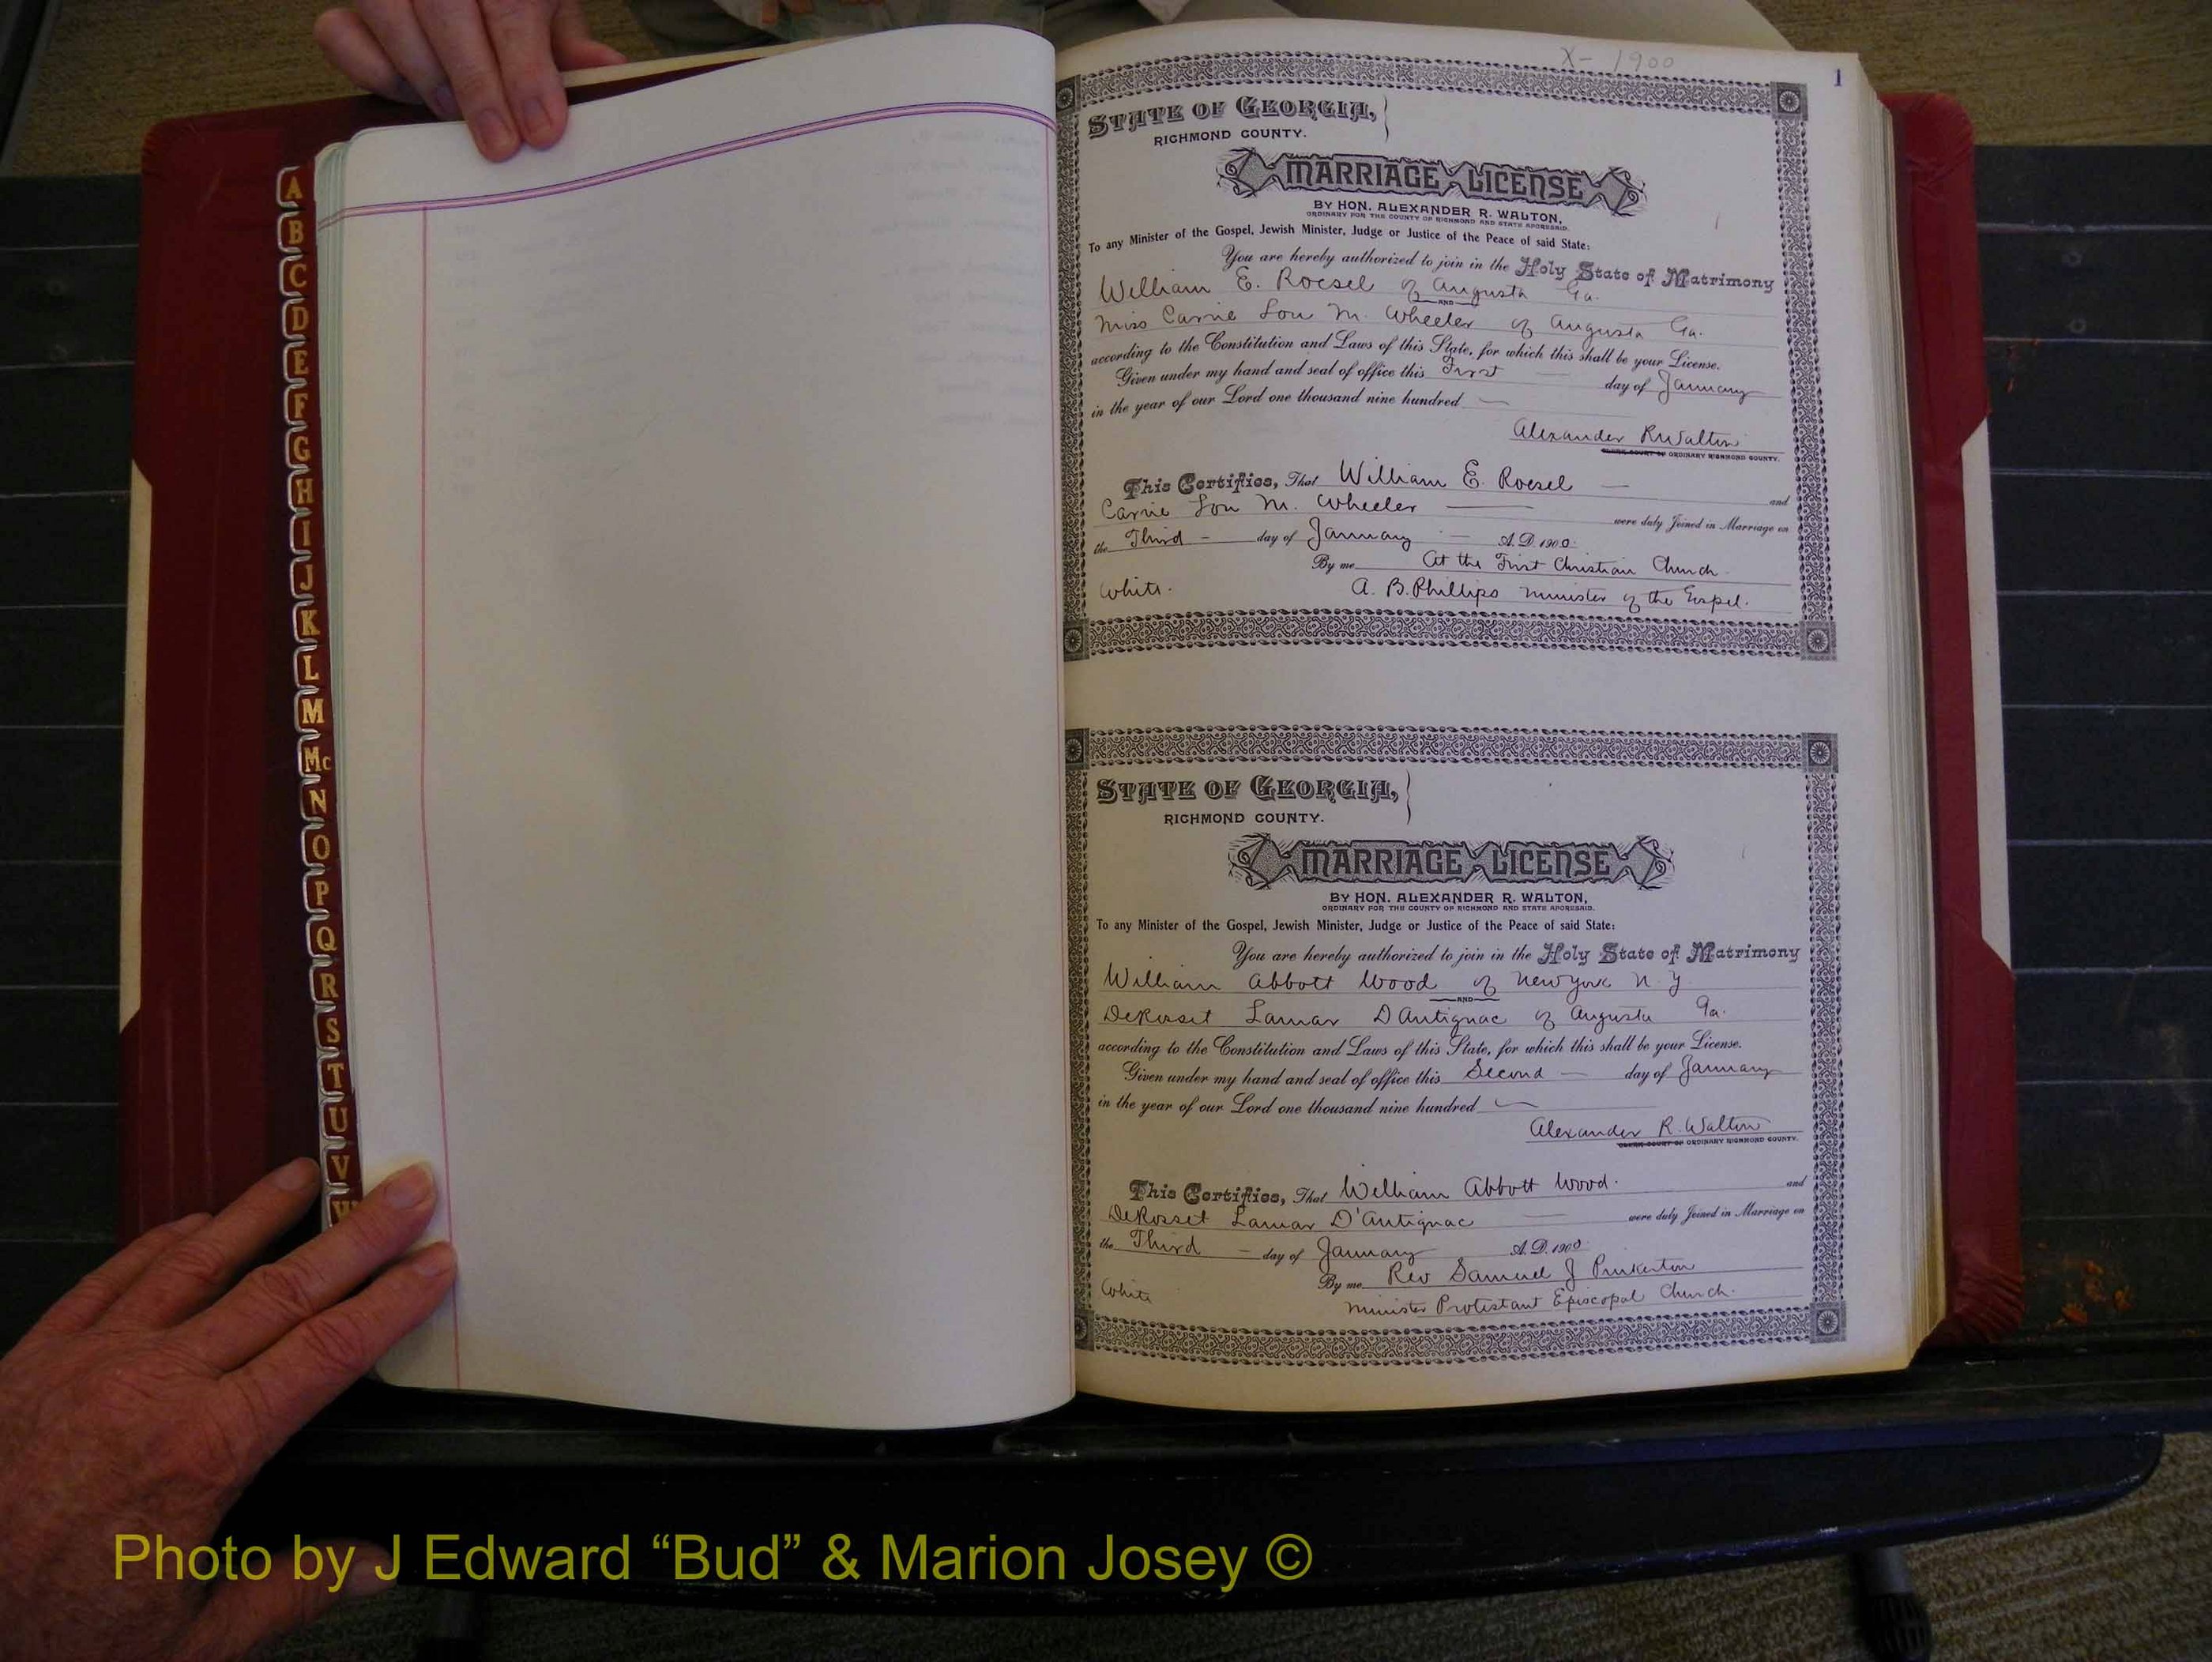 A
B
C
D
E
F
G
H
I
J
K
L
M
Mc
N
O
P
Q
R
S
T
U
V
W
X- 1900
1
STATE OF GEORGIA,
RICHMOND COUNTY.
MARRIAGE LICENSE
BY HON. ALEXANDER R. WALTON,
ORDINARY FOR THE COUNTY OF RICHMOND AND STATE AFORESAID.
To any Minister of the Gospel, Jewish Minister, Judge or Justice of the Peace of said State:
You are hereby authorized to join in the Holy State of Matrimony
William E. Roesel of Augusta Ga.
AND
Miss Carrie Lou M. Wheeler of Augusta Ga.
according to the Constitution and Laws of this State, for which this shall be your License.
Given under my hand and seal of office this First day of January
in the year of our Lord one thousand nine hundred
Alexander R Walton
CLERK COURT OF ORDINARY RICHMOND COUNTY.
This Certifies, That William E. Roesel and
Carrie Lou M. Wheeler were duly Joined in Marriage on
the Third day of January A. D. 1900.
By me At the First Christian Church
White. A. B. Phillips Minister of the Gospel.
STATE OF GEORGIA,
RICHMOND COUNTY.
MARRIAGE LICENSE
BY HON. ALEXANDER R. WALTON,
ORDINARY FOR THE COUNTY OF RICHMOND AND STATE AFORESAID.
To any Minister of the Gospel, Jewish Minister, Judge or Justice of the Peace of said State:
You are hereby authorized to join in the Holy State of Matrimony
William Abbott Wood of New York N. Y
AND
DeRosset Lamar D Antignac of Augusta Ga.
according to the Constitution and Laws of this State, for which this shall be your License.
Given under my hand and seal of office this Second day of January
in the year of our Lord one thousand nine hundred
Alexander R. Walton
CLERK COURT OF ORDINARY RICHMOND COUNTY.
This Certifies, That William Abbott Wood. and
DeRosset Lamar D'Antignac were duly Joined in Marriage on
the Third day of January A. D. 1900.
By me Rev Samuel J Pinkerton
White Minister Protestant Episcopal Church.
Photo by J Edward “Bud” & Marion Josey ©